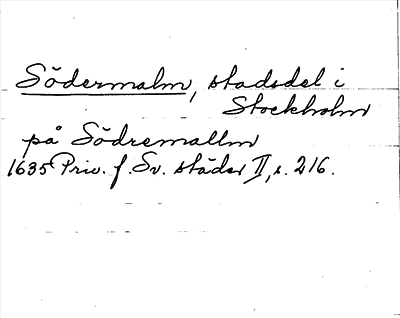 Södermalm, stadsdel i
Stockholm
på Södremallm
1635 Priv. f. Sv. städer II, s. 216.